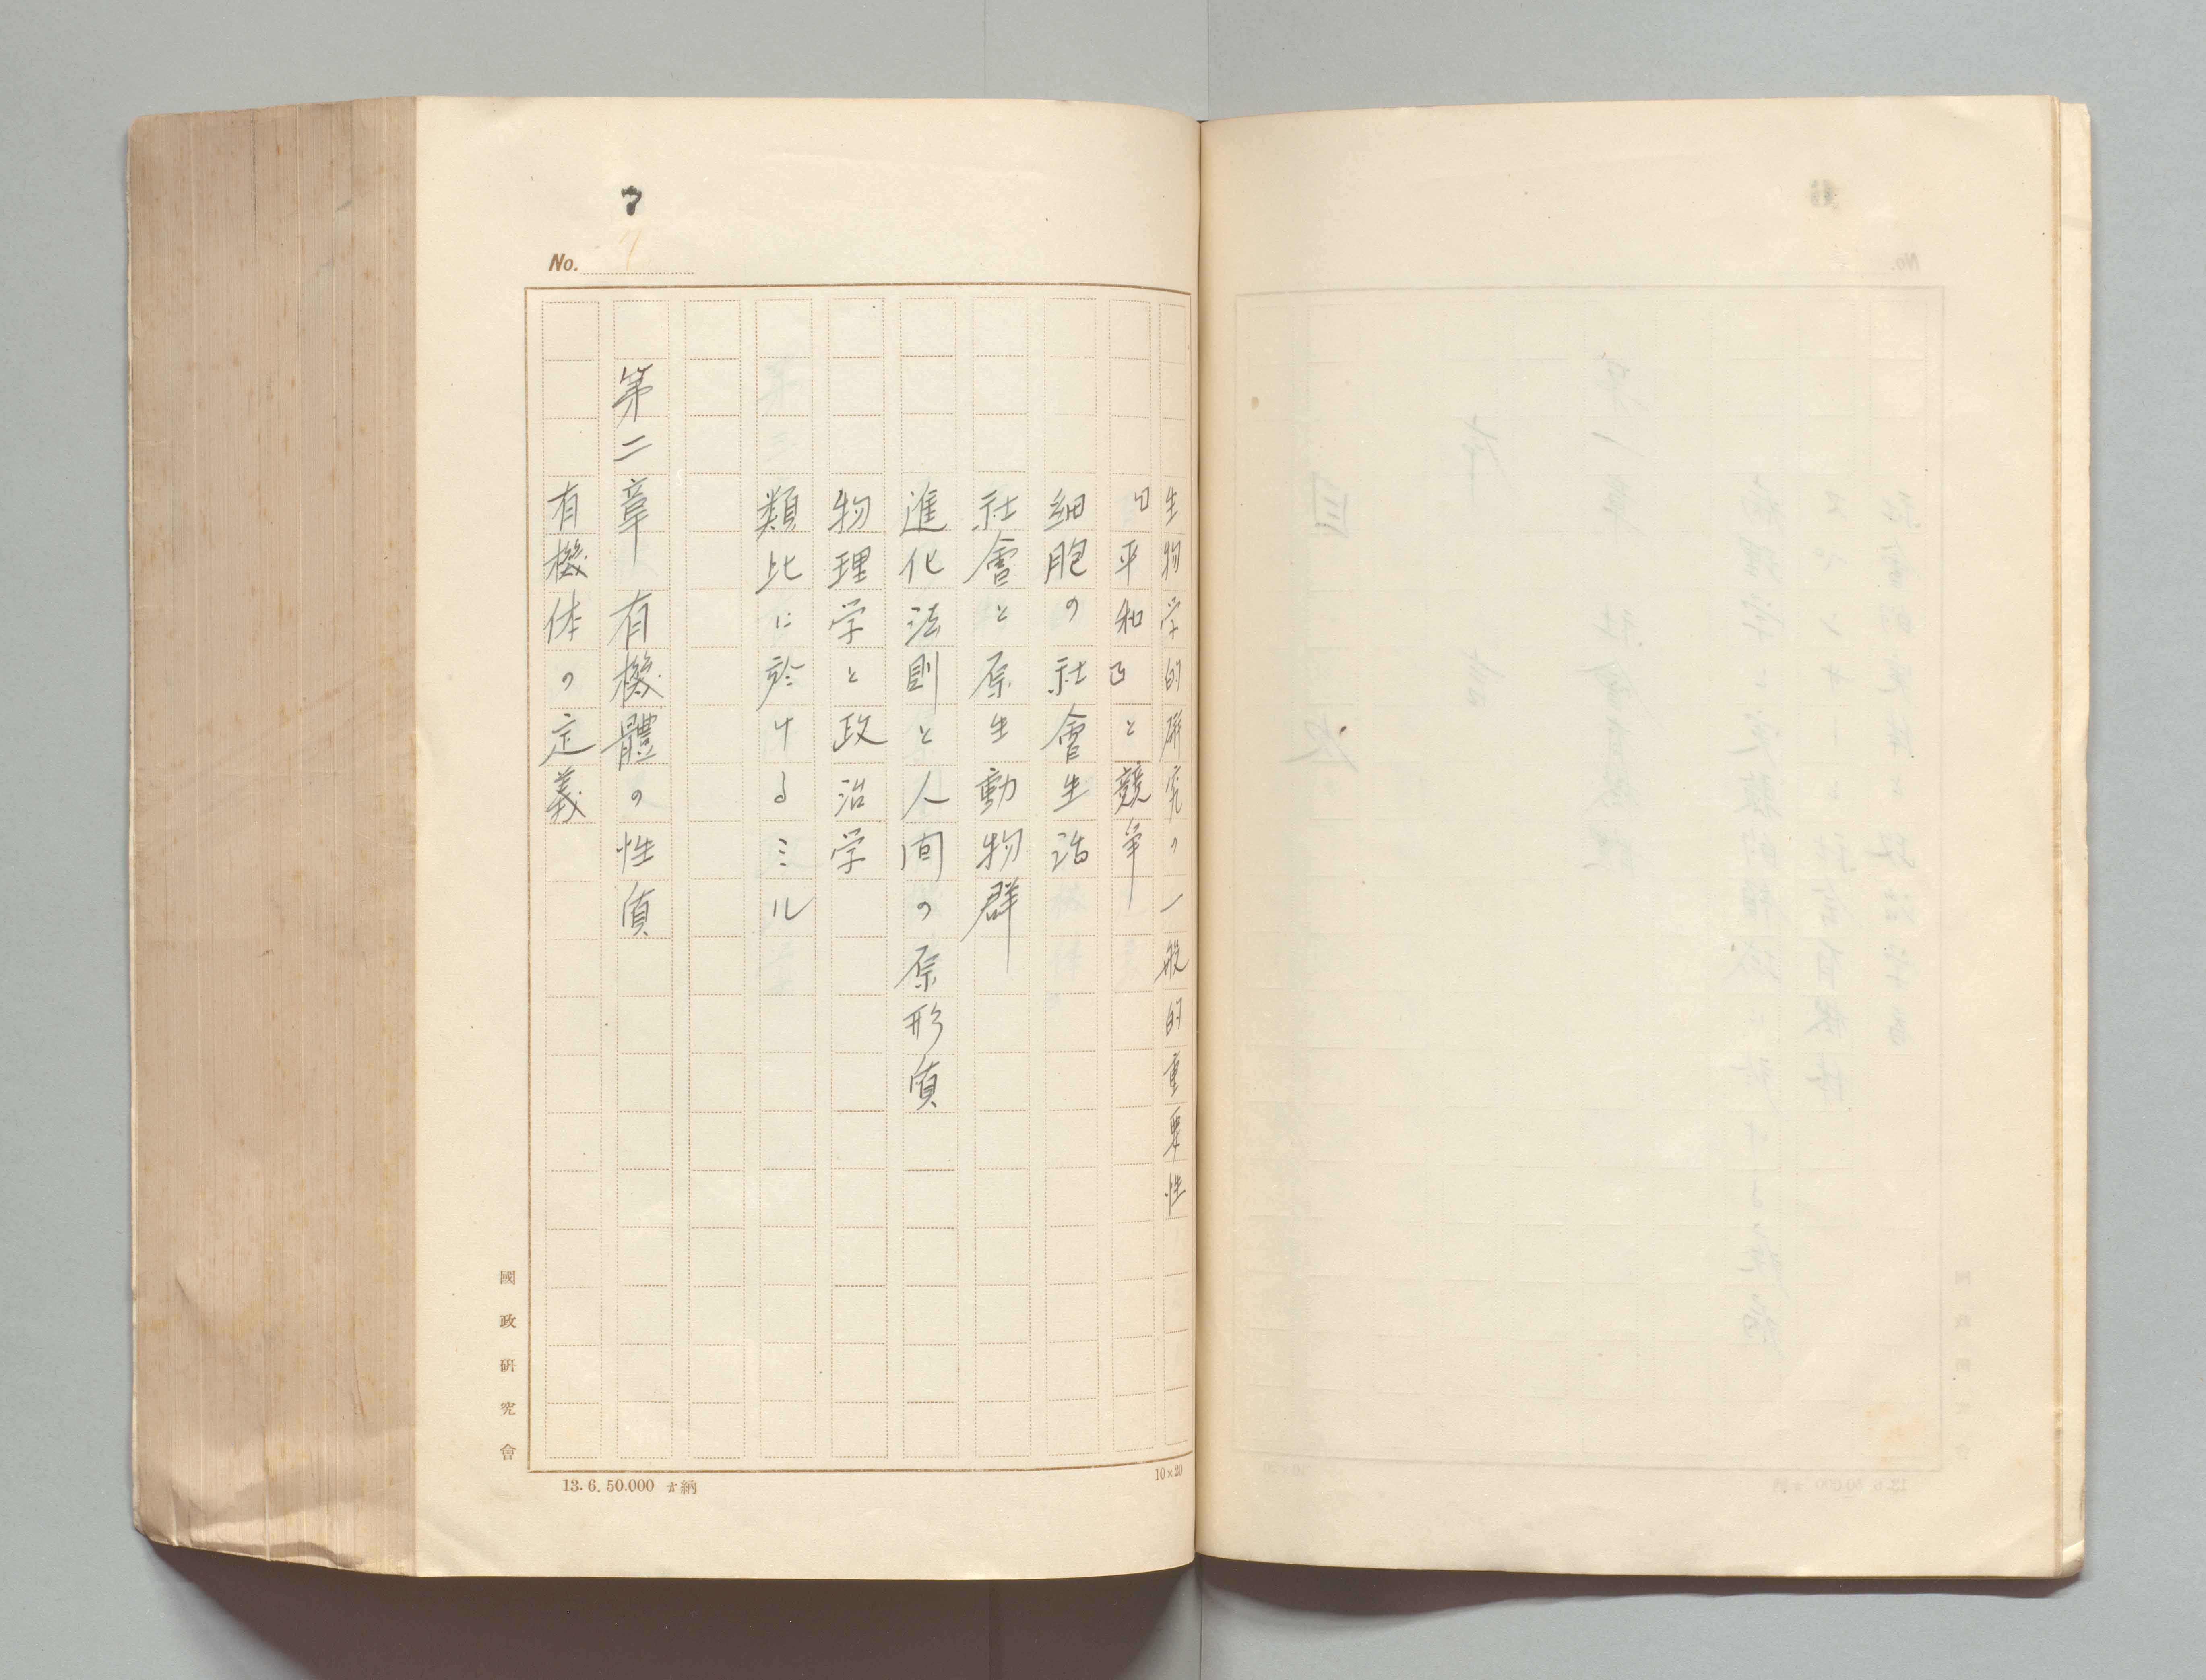 7
No. 7
生物学的研究の一般的重要性
「平和」と競争
細胞の社會生活
社會と原生動物群
進化法則と人間の原形質
物理学と政治学
類比に於けるミル
第二章 有機體の性質
有機体の定義
國政研究會
13.6.50.000 納
10×20